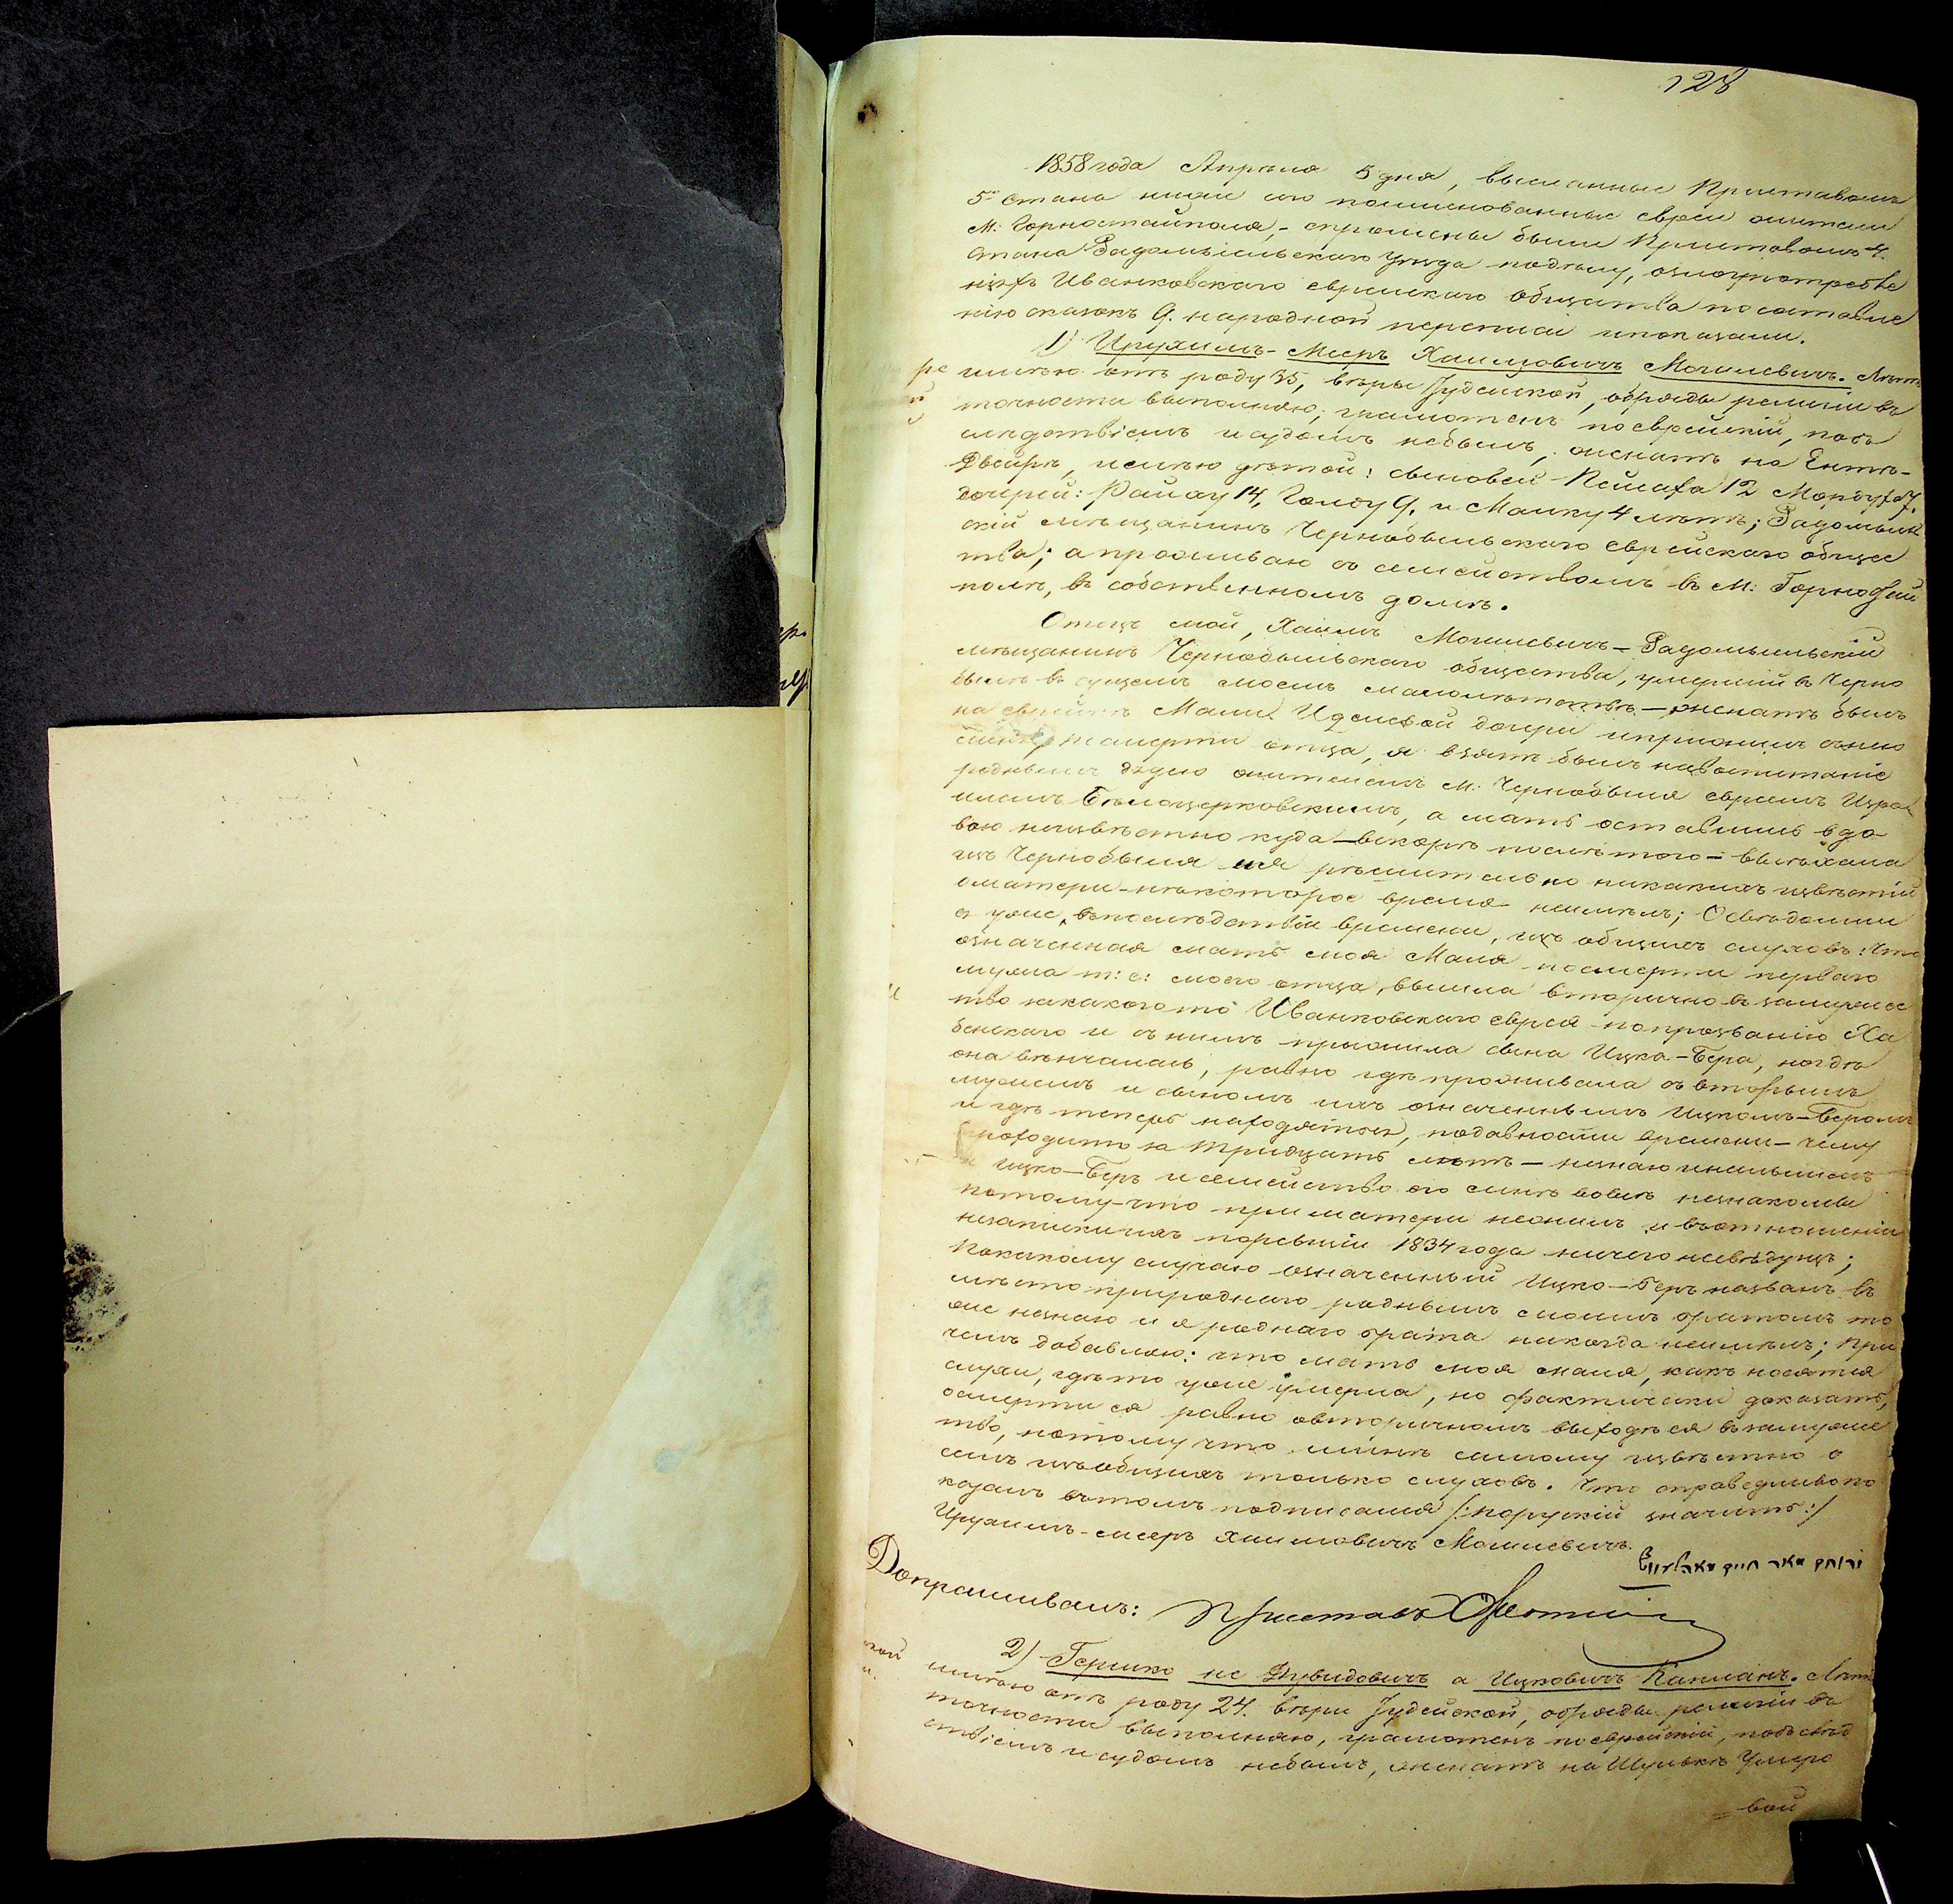 128
1858 года Апреля 5 дня, высланные Приставомъ
5го стана ниже сего поименованные евреи жители
М: Горностайполя, - спрошены были Приставомъ 4.
стана Радомысльскаго Уезда по делу, о злоупотребле
ніяхъ Иванковскаго еврейскаго общества по составле
нію сказокъ 9. народной переписи и показали.
1) Ирухимъ-Мееръ Хаимовичъ Могилевичъ. Летъ
имею отъ роду 35, веры Іудейской, обряды религіи въ
точности выполняю, грамотенъ по еврейскій, подъ
следствіемъ и судомъ не былъ, женатъ на Ентъ-
Двейре, и имею детей: сыновей 12 7.
дочерей: 14, Голду 9, и Малку 4 летъ; Радомысль
скій мещанинъ Чернобыльскаго еврейскаго общес
тва; а проживаю съ семействомъ въ М: Горностай
поле, въ собственномъ доме.
Отецъ мой, Хаимъ Могилевичъ - Радомысльскій
мещанинъ Чернобыльскаго общества, умершій въ Черно
быле въ сущемъ моемъ малолетстве - женатъ былъ
на еврейке Мали дочери и прижилъ съ нею
меня, по смерти отца, я взятъ былъ на воспитаніе
роднымъ дядею жителемъ М: Чернобыля евреемъ Изра
илемъ Белоцерковскимъ, а мать оставшись вдо
вою неизвестно куда - вскоре после того - выехала
изъ Чернобыля и я решительно никакихъ известій
о матери - некоторое время не имелъ; Осведомил
ся уже, въ последствіи времени, изъ общихъ слуховъ: что
означенная мать моя Маля по смерти перваго
мужа т: е: моего отца, вышла вторично въ замужес
тво за какого то Иванковскаго еврея по прозванію Ха
бенскаго и съ нимъ прижила сына Ицка-Бера, но где
она венчалась, равно где проживала съ вторымъ
мужемъ и сыномъ ихъ означеннымъ Ицкомъ-Беромъ
и где теперь находятся, по давности времени - чему
проходитъ за тридцать летъ - не знаю и не слышалъ
Ицко-Беръ и семейство его мне вовсе незнакомы
потому-что при матери не жилъ и въ отношеніи
записки ихъ по ревизіи 1834 года ничего не сведущъ;
По какому случаю означенный Ицко-Беръ названъ въ
место природнаго роднымъ моимъ братомъ то
же не знаю и я роднаго брата никогда не имелъ; При
чемъ добавляю: что мать моя Маля, какъ носятся
слухи, где то уже умерла, но фактически доказать,
о смерти ея равно о вторичномъ выходе ея въ замужес
тво, потому что мне самому известно о
семъ изъ общихъ только слуховъ. Что справедливо по
казалъ въ томъ подписался /: по рускій значитъ :/
Ирухимъ-мееръ Хаимовичъ Могилевичъ.
Допрашивалъ: Приставъ
2) Гершко не Дувидовичъ а Ицковичъ Капланъ. Летъ
имею отъ роду 24. веры Іудейской, обряды религіи въ
точности выполняю, грамотенъ по еврейскій, подъ след
ствіемъ и судомъ не былъ, женатъ на
вой